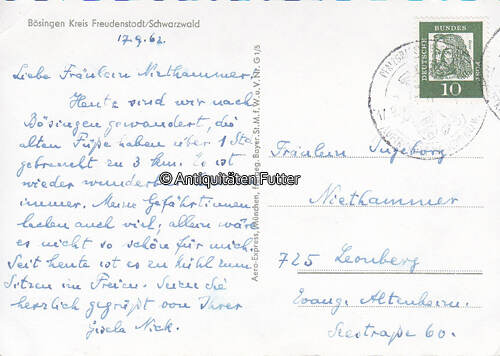 Bösingen Kreis Freudenstadt/Schwarzwald
17.9.62.
Liebe Fräulein Niethammer,
Heute sind wir nach
Bösingen gewandert, die
alten Füße haben über 1 Std
gebraucht zu 3 km. Es ist
wieder wunder
immer. Meine Gefährtinnen
lachen auch viel; allein wäre
es nicht so schön für mich.
Seit heute ist es zu kühl zum
Sitzen im Freien. Seien Sie
herzlich gegrüßt von Ihrer
Gisela Nick.
© Antiquitäten Futter
Aero-Express, München, freigeg. Bayer. St. M. f. W. u. V. Nr. G 1/5
DEUTSCHE BUNDESPOST
10
Fräulein Ingeborg
Niethammer
725 Leonberg
Evang. Altenheim.
Seestraße 60.